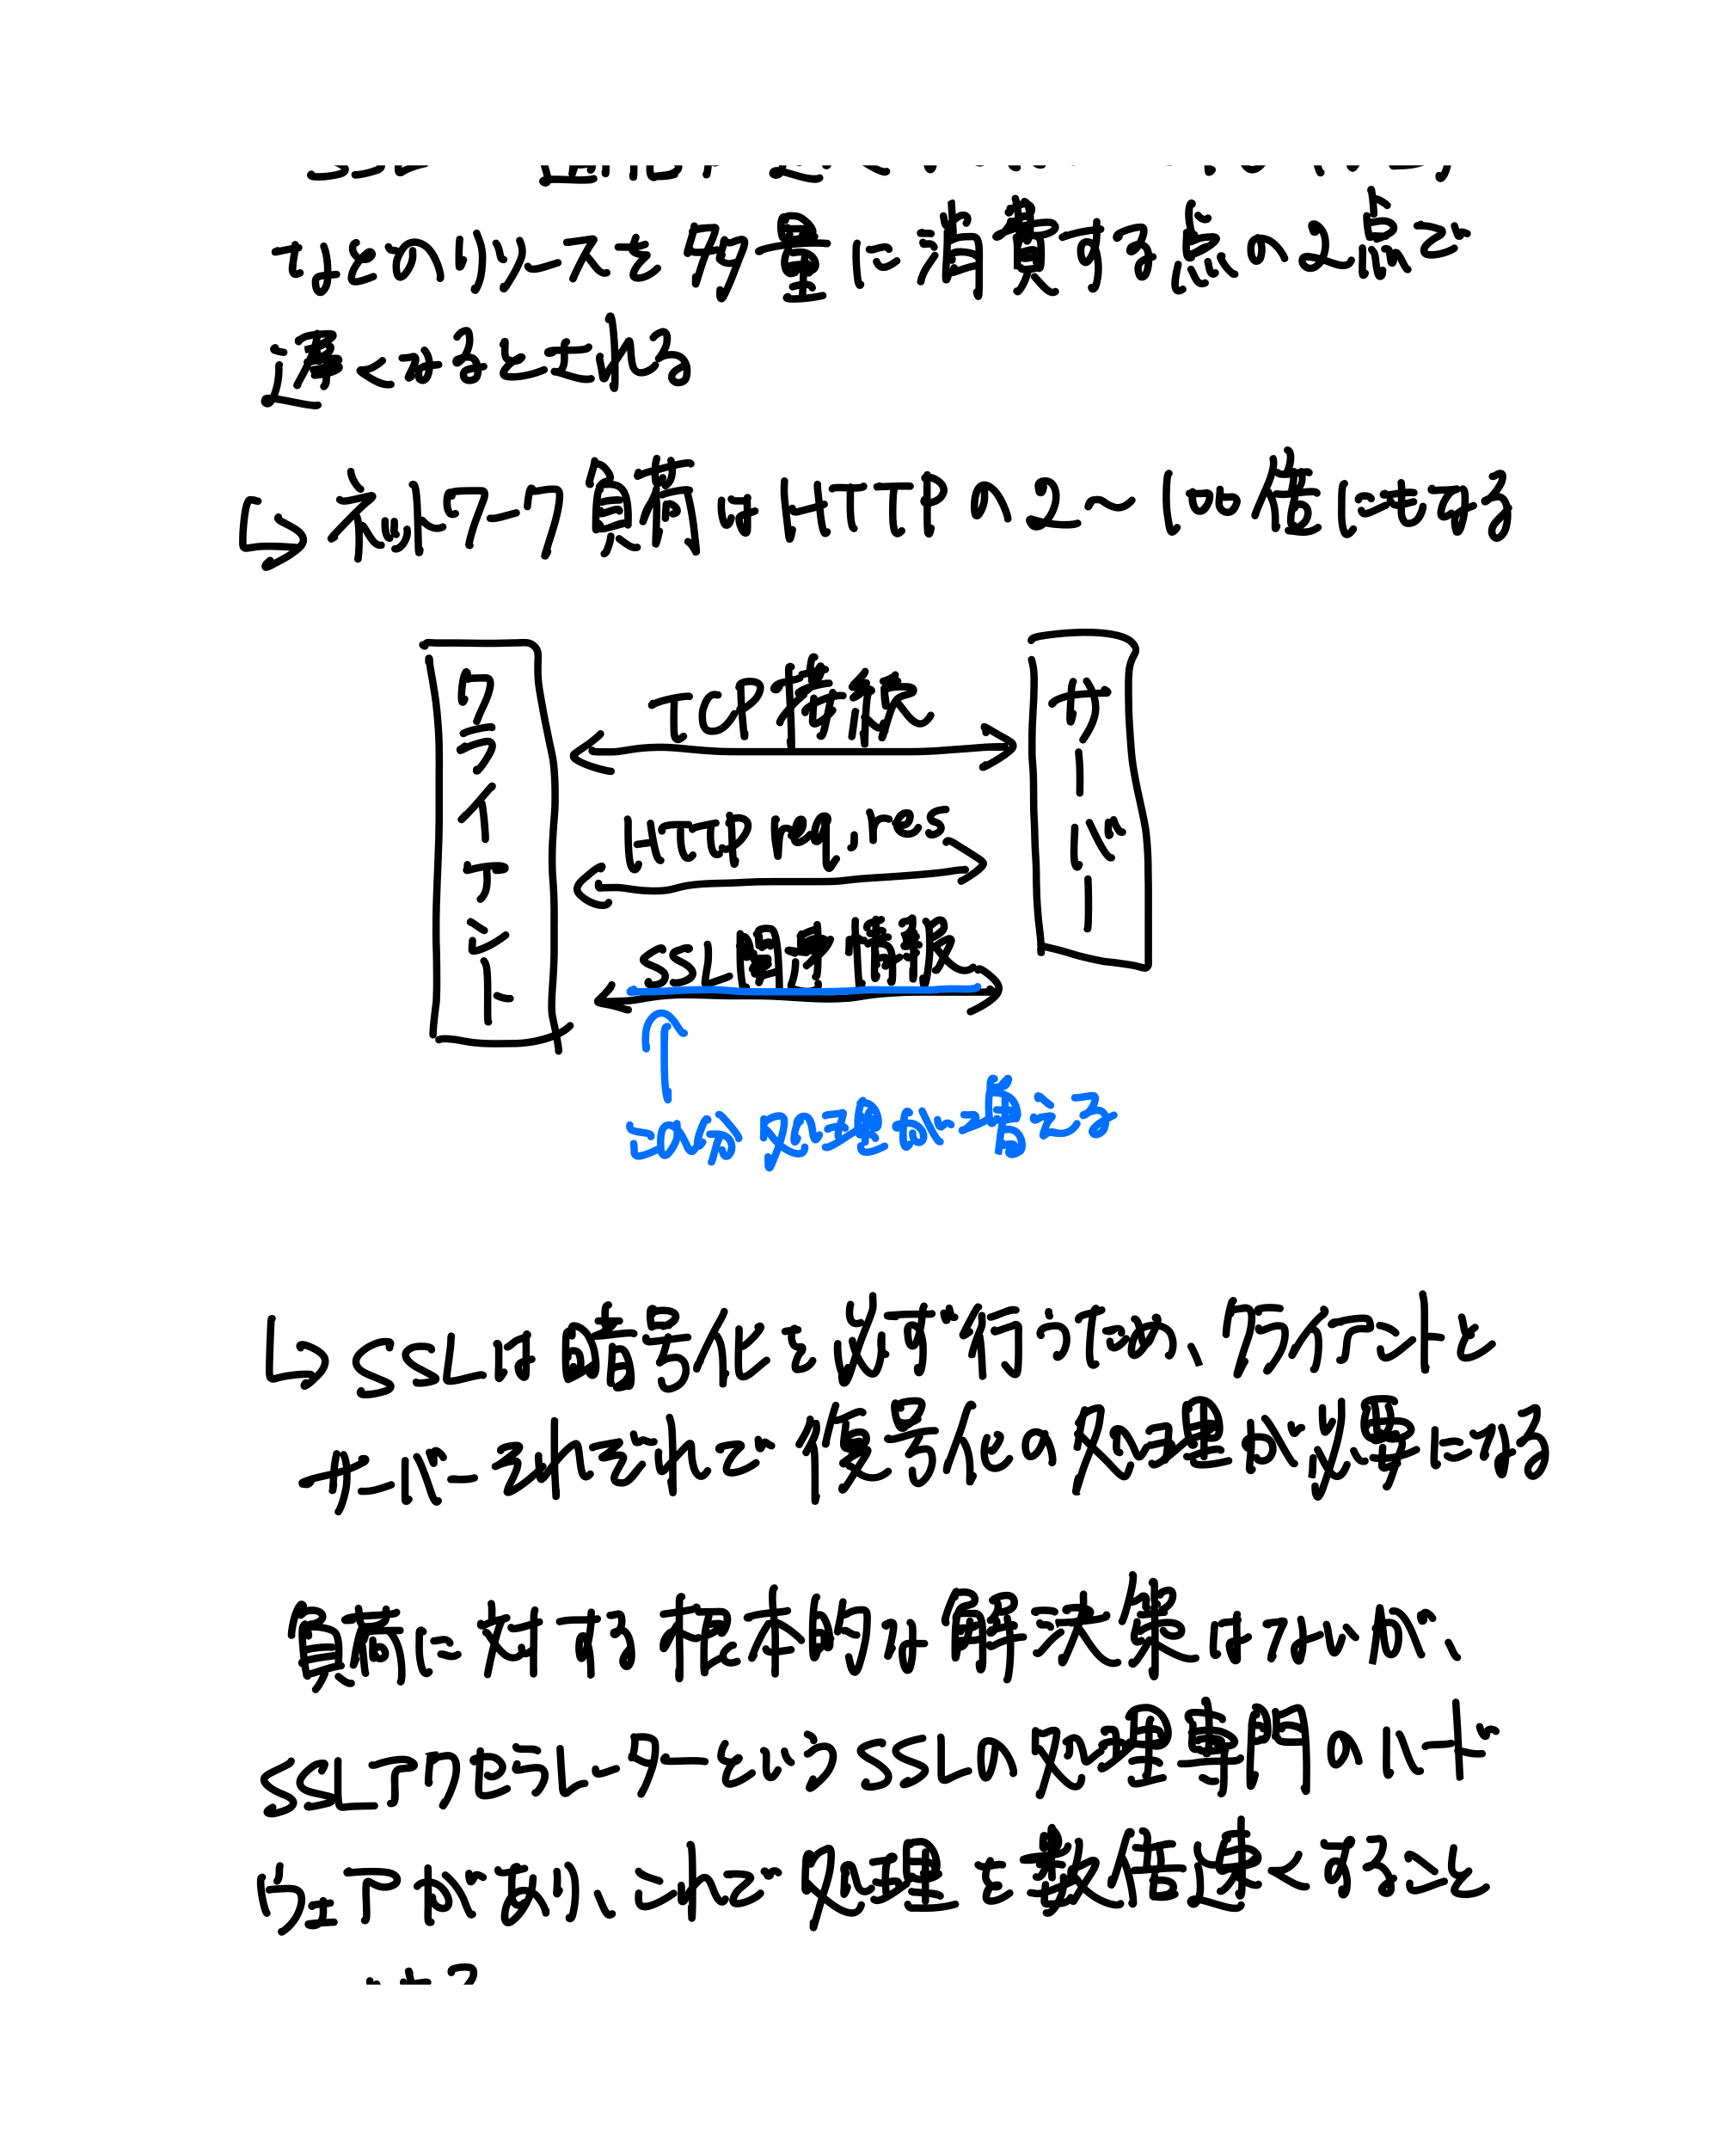 などのリソースを多量に消費する点の2点で
遅くなるとされる
↳ネットワーク負荷はHTTPの2〜100倍にもなる
クライアント
サーバー
TCP接続
HTTP req,res
SSL関連情報
この分処理が増える
↳SSLは暗号化を必ず行うため、クライアントと
サーバーそれぞれで復号化の処理が必要になる
負荷に対する根本的な解決策はないが、
SSLアクセラレーターというSSLの処理専門のハード
ウェアがあり、これで処理を数倍速くすること